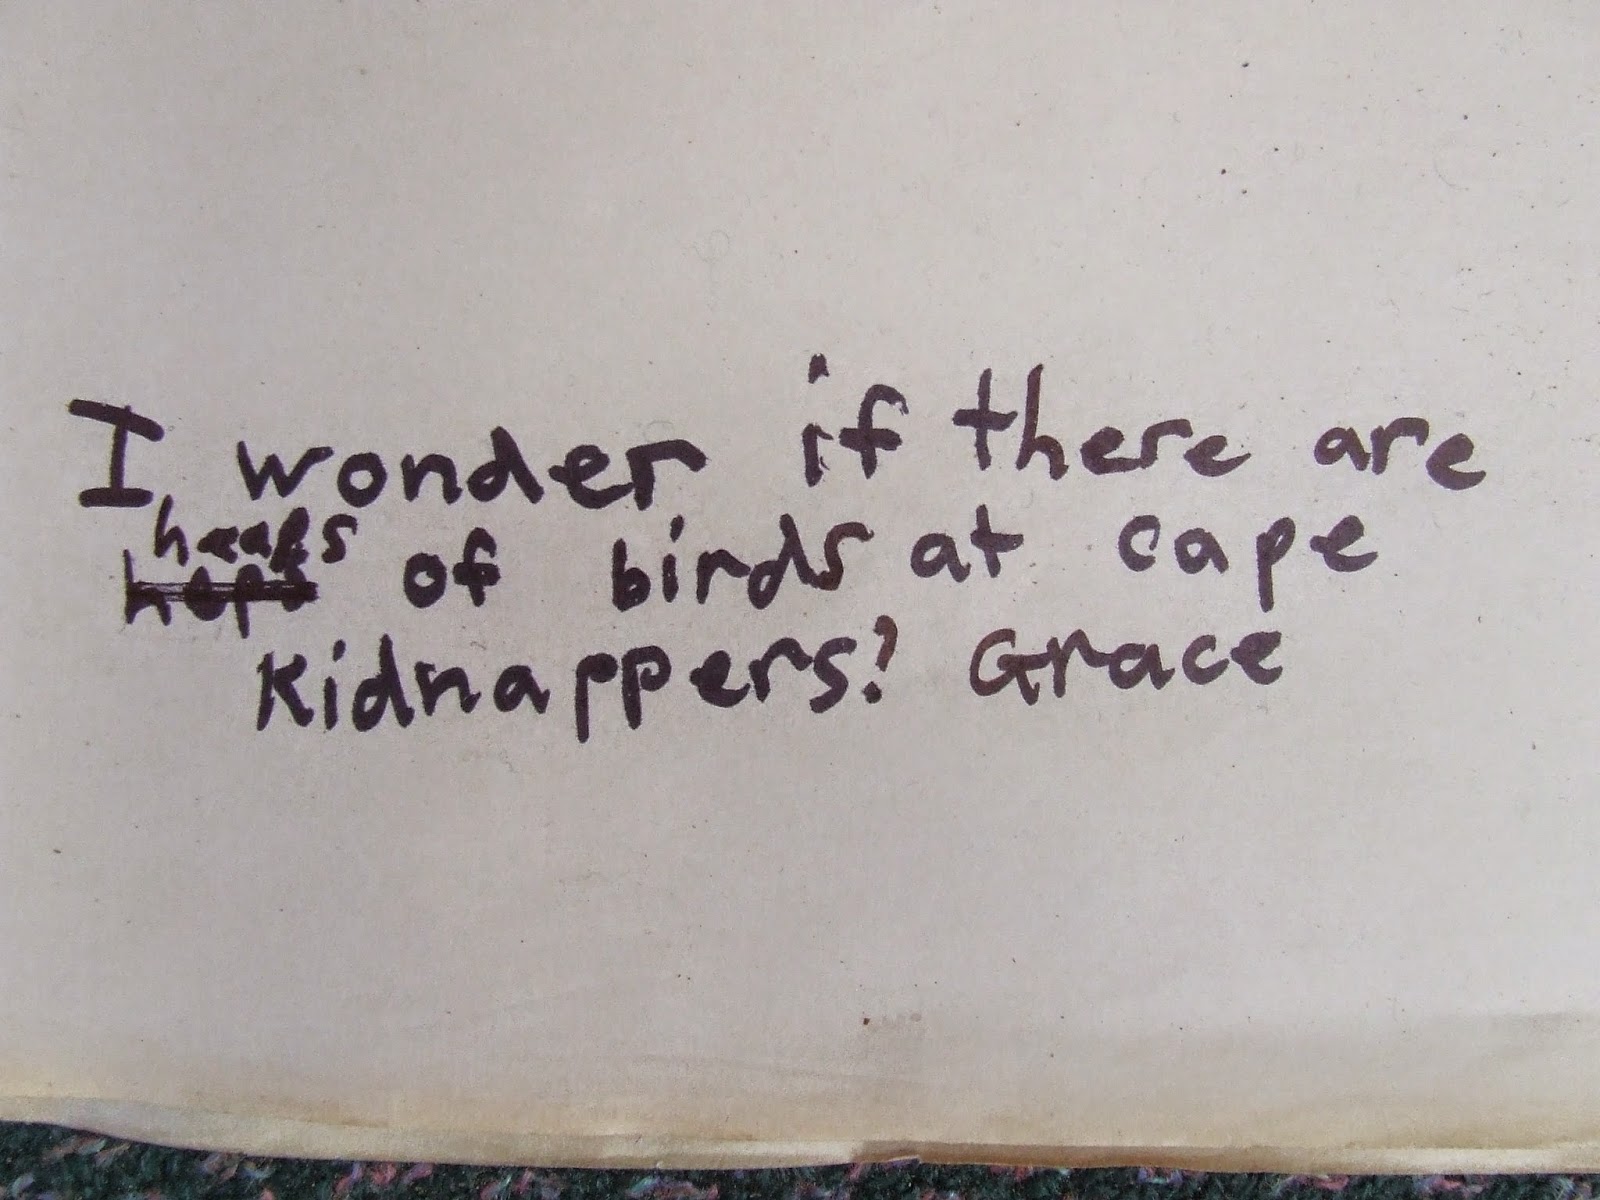 I wonder if there are
heaps
heps of birds at cape
Kidnappers? Grace